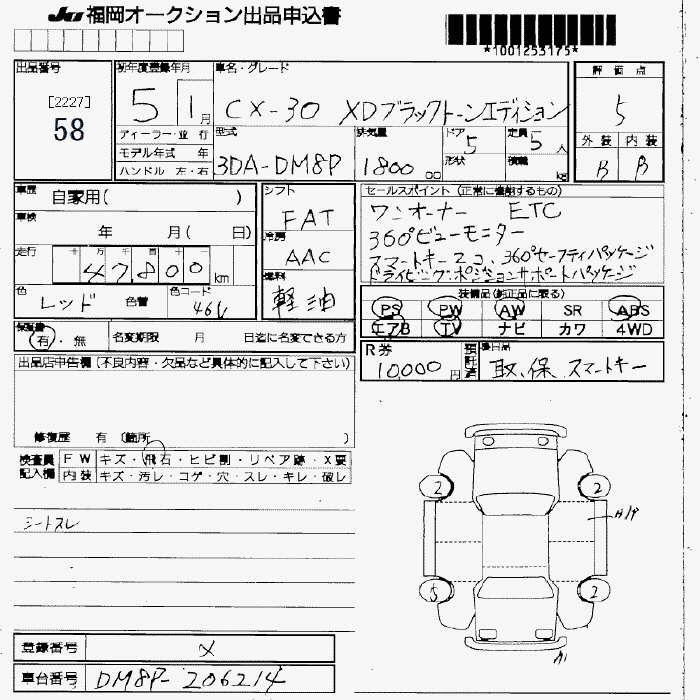 JU 福岡オークション出品申込書
*1001253175*
出品番号
[2227]
58
初年度登録年月
5 1月
車名・グレード
CX-30 XDブラックトーンエディション
評価点
5
ディーラー・並行
モデル年式 年
ハンドル 左・右
型式
3DA-DM8P
排気量
1800 cc
ドア 5
形状
定員 5人
積載 kg
外装 内装
B B
車歴 自家用( )
車検 年 月( 日)
走行 十 万 千 百 十
47,800 km
色 レッド 色替 色コード 46V
シフト
FAT
冷房
AAC
燃料
軽油
セールスポイント (正常に機能するもの)
ワンオーナー ETC
360°ビューモニター
スマートキー2コ、360°セーフティパッケージ
ドライビングポジションサポートパッケージ
装備品(純正品に限る)
PS PW AW SR ABS
エアB TV ナビ カワ 4WD
保証書
有・無 名変期限 月 日迄に名変できる方
R券
10,000円
預託済
後日品
取、保 スマートキー
出品店申告欄(不良内容・欠品など具体的に記入して下さい)
修復歴 有 (箇所 )
検査員記入欄
FW キズ・飛石・ヒビ割・リペア跡・X要
内装 キズ・汚レ・コゲ・穴・スレ・キレ・破レ
シートスレ
2 2
5 2
A1
登録番号 メ
車台番号 DM8P-206214